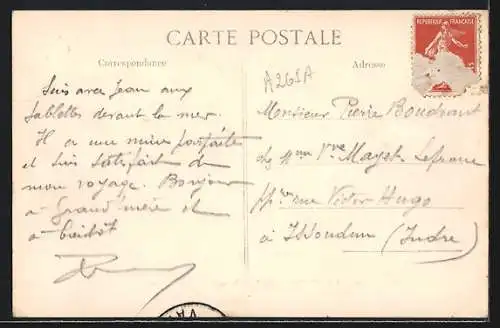 CARTE POSTALE
REPUBLIQUE FRANÇAISE
Correspondance
Adresse
A 263A
Suis avec Jean aux
Sablettes devant la mer.
Il a une mine parfaite
et suis satisfait de
mon voyage. Bonjour
à Grand'mère et
à bientôt
Monsieur Pierre Boudrant
chez Mme Vve Mayet-Lefranc
rue Victor Hugo
à Issoudun (Indre)